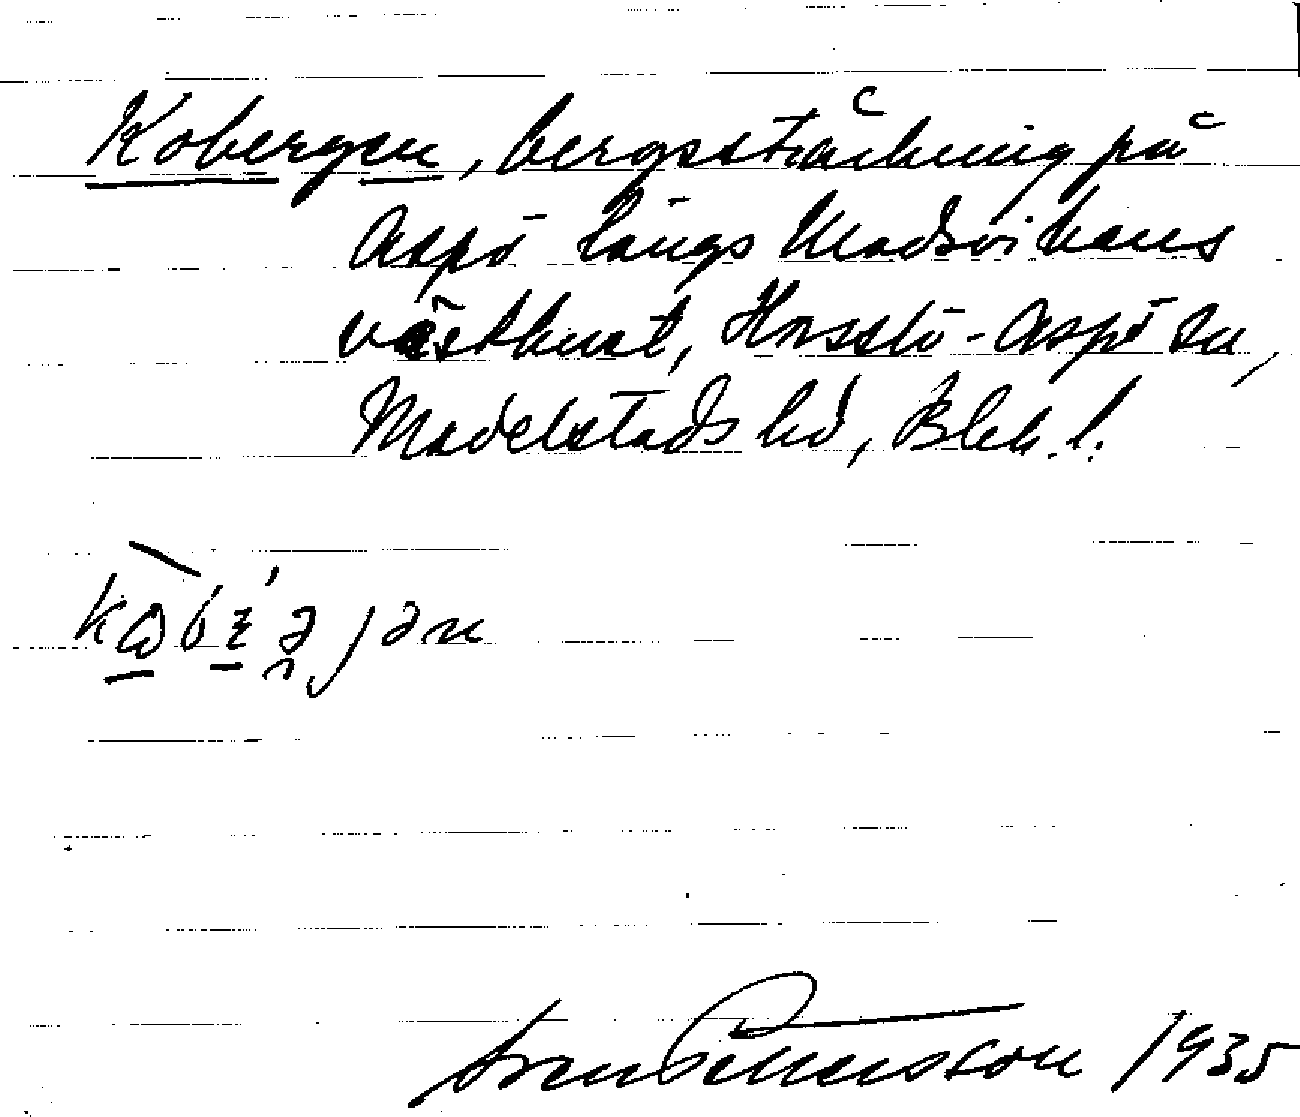 Kobergen, bergssträckning på
Aspö längs Madsvikens
västkust, Hasslö-Aspö sn,
Medelstads hd, Blek. l.
Sven Pettersson 1935